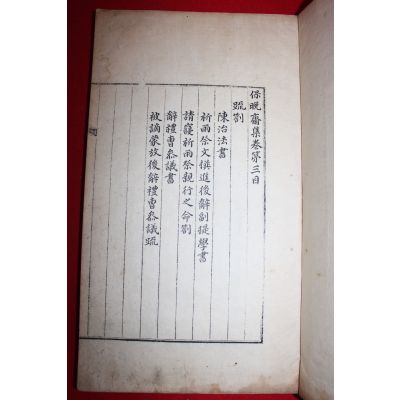 保晚齋集卷第三目
疏劄
陳治法書
祈雨祭文撰進後辭副提學書
請寢祈雨祭親行之命劄
辭禮曹參議書
被謫蒙放後辭禮曹參議疏